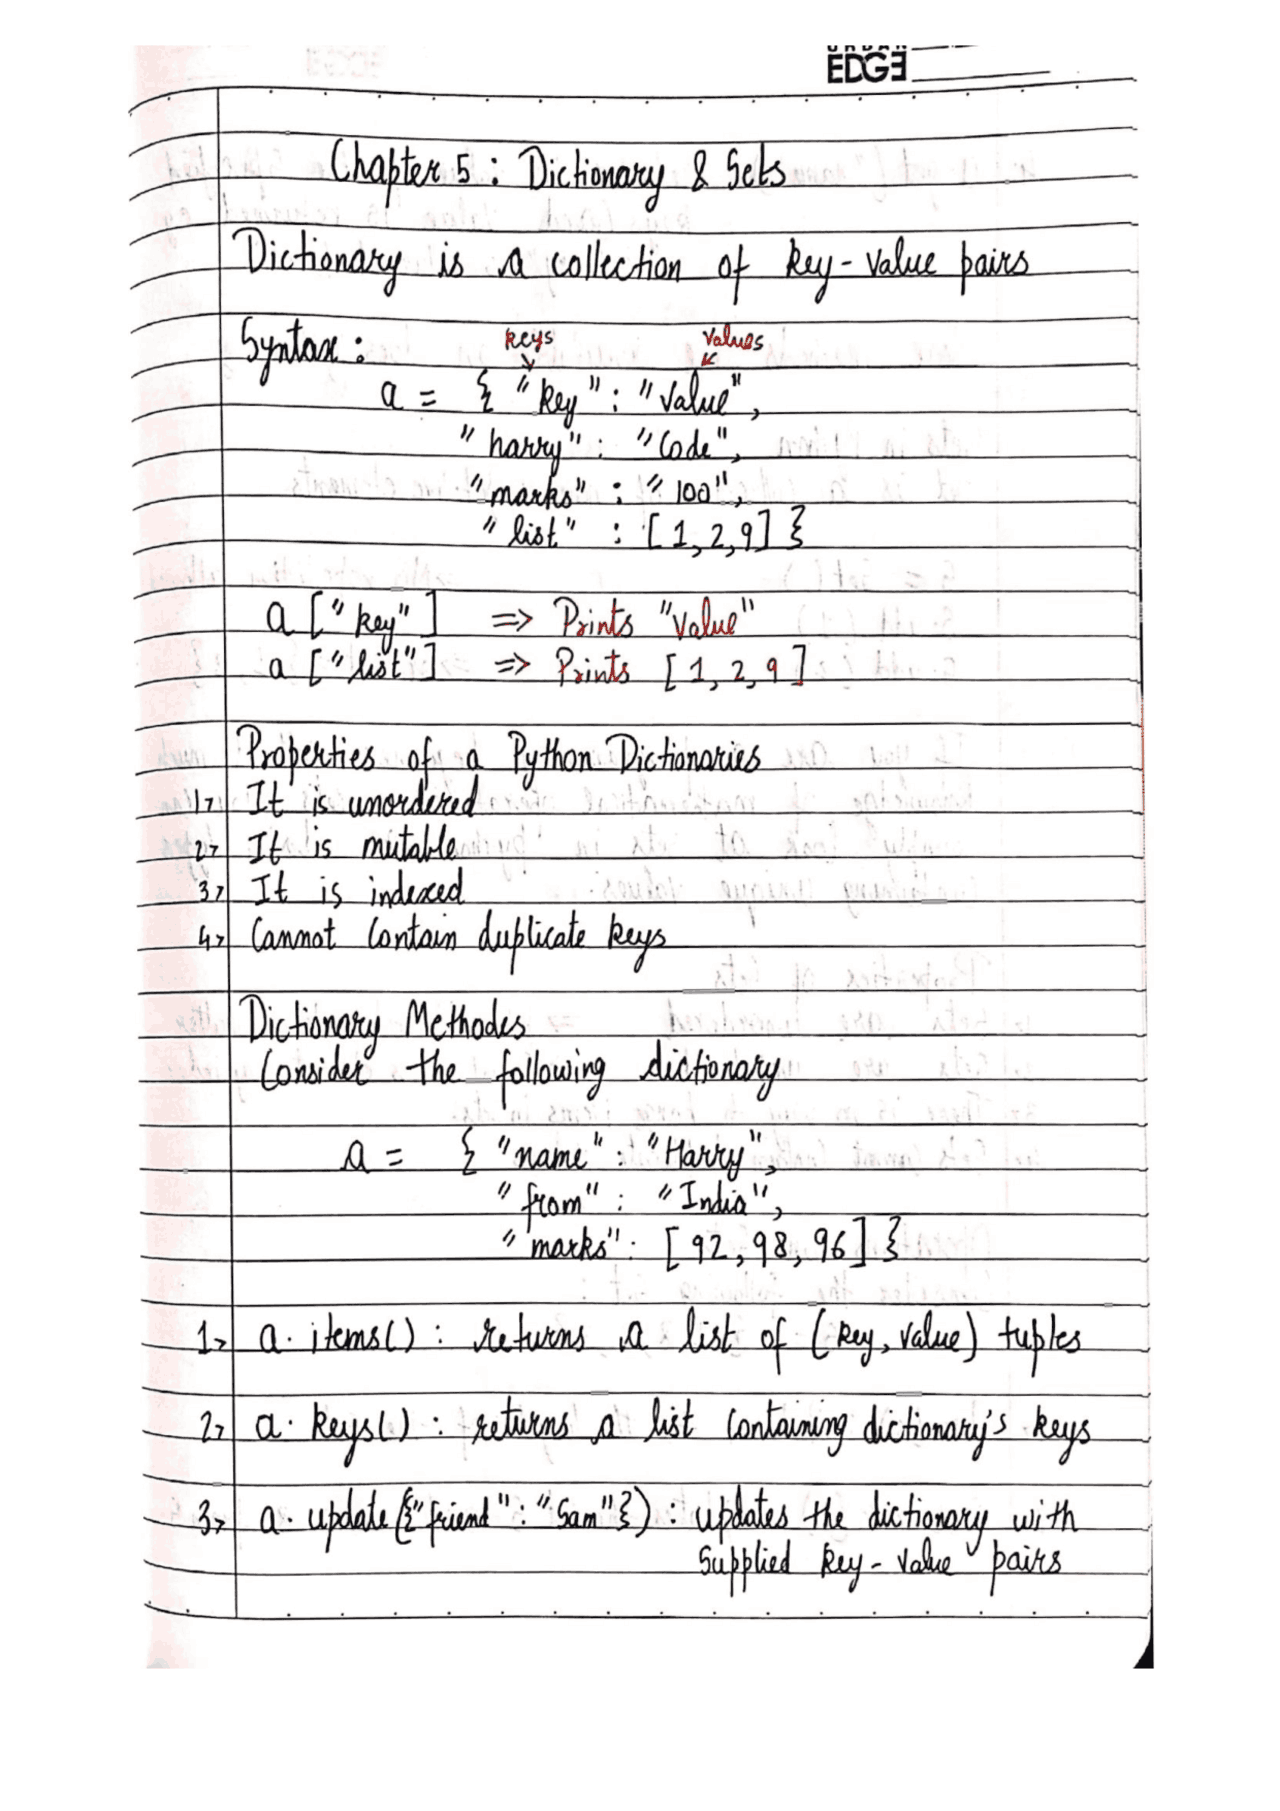 URBAN
EDGE
Chapter 5 : Dictionary & Sets
Dictionary is a collection of key-value pairs
Syntax : keys values
a = { "key" : "value",
"harry" : "Code",
"marks" : "100",
"list" : [1,2,9] }
a ["key"] => Prints "value"
a ["list"] => Prints [1,2,9]
Properties of a Python Dictionaries
1> It is unordered
2> It is mutable
3> It is indexed
4> Cannot Contain duplicate keys
Dictionary Methodes
Consider the following dictionary
a = { "name" : "Harry",
"from" : "India",
"marks" : [92,98,96] }
1> a.items() : returns a list of (key,value) tuples
2> a.keys() : returns a list Containing dictionary's keys
3> a.update({"friend" : "Sam"}) : updates the dictionary with
Supplied key-value pairs